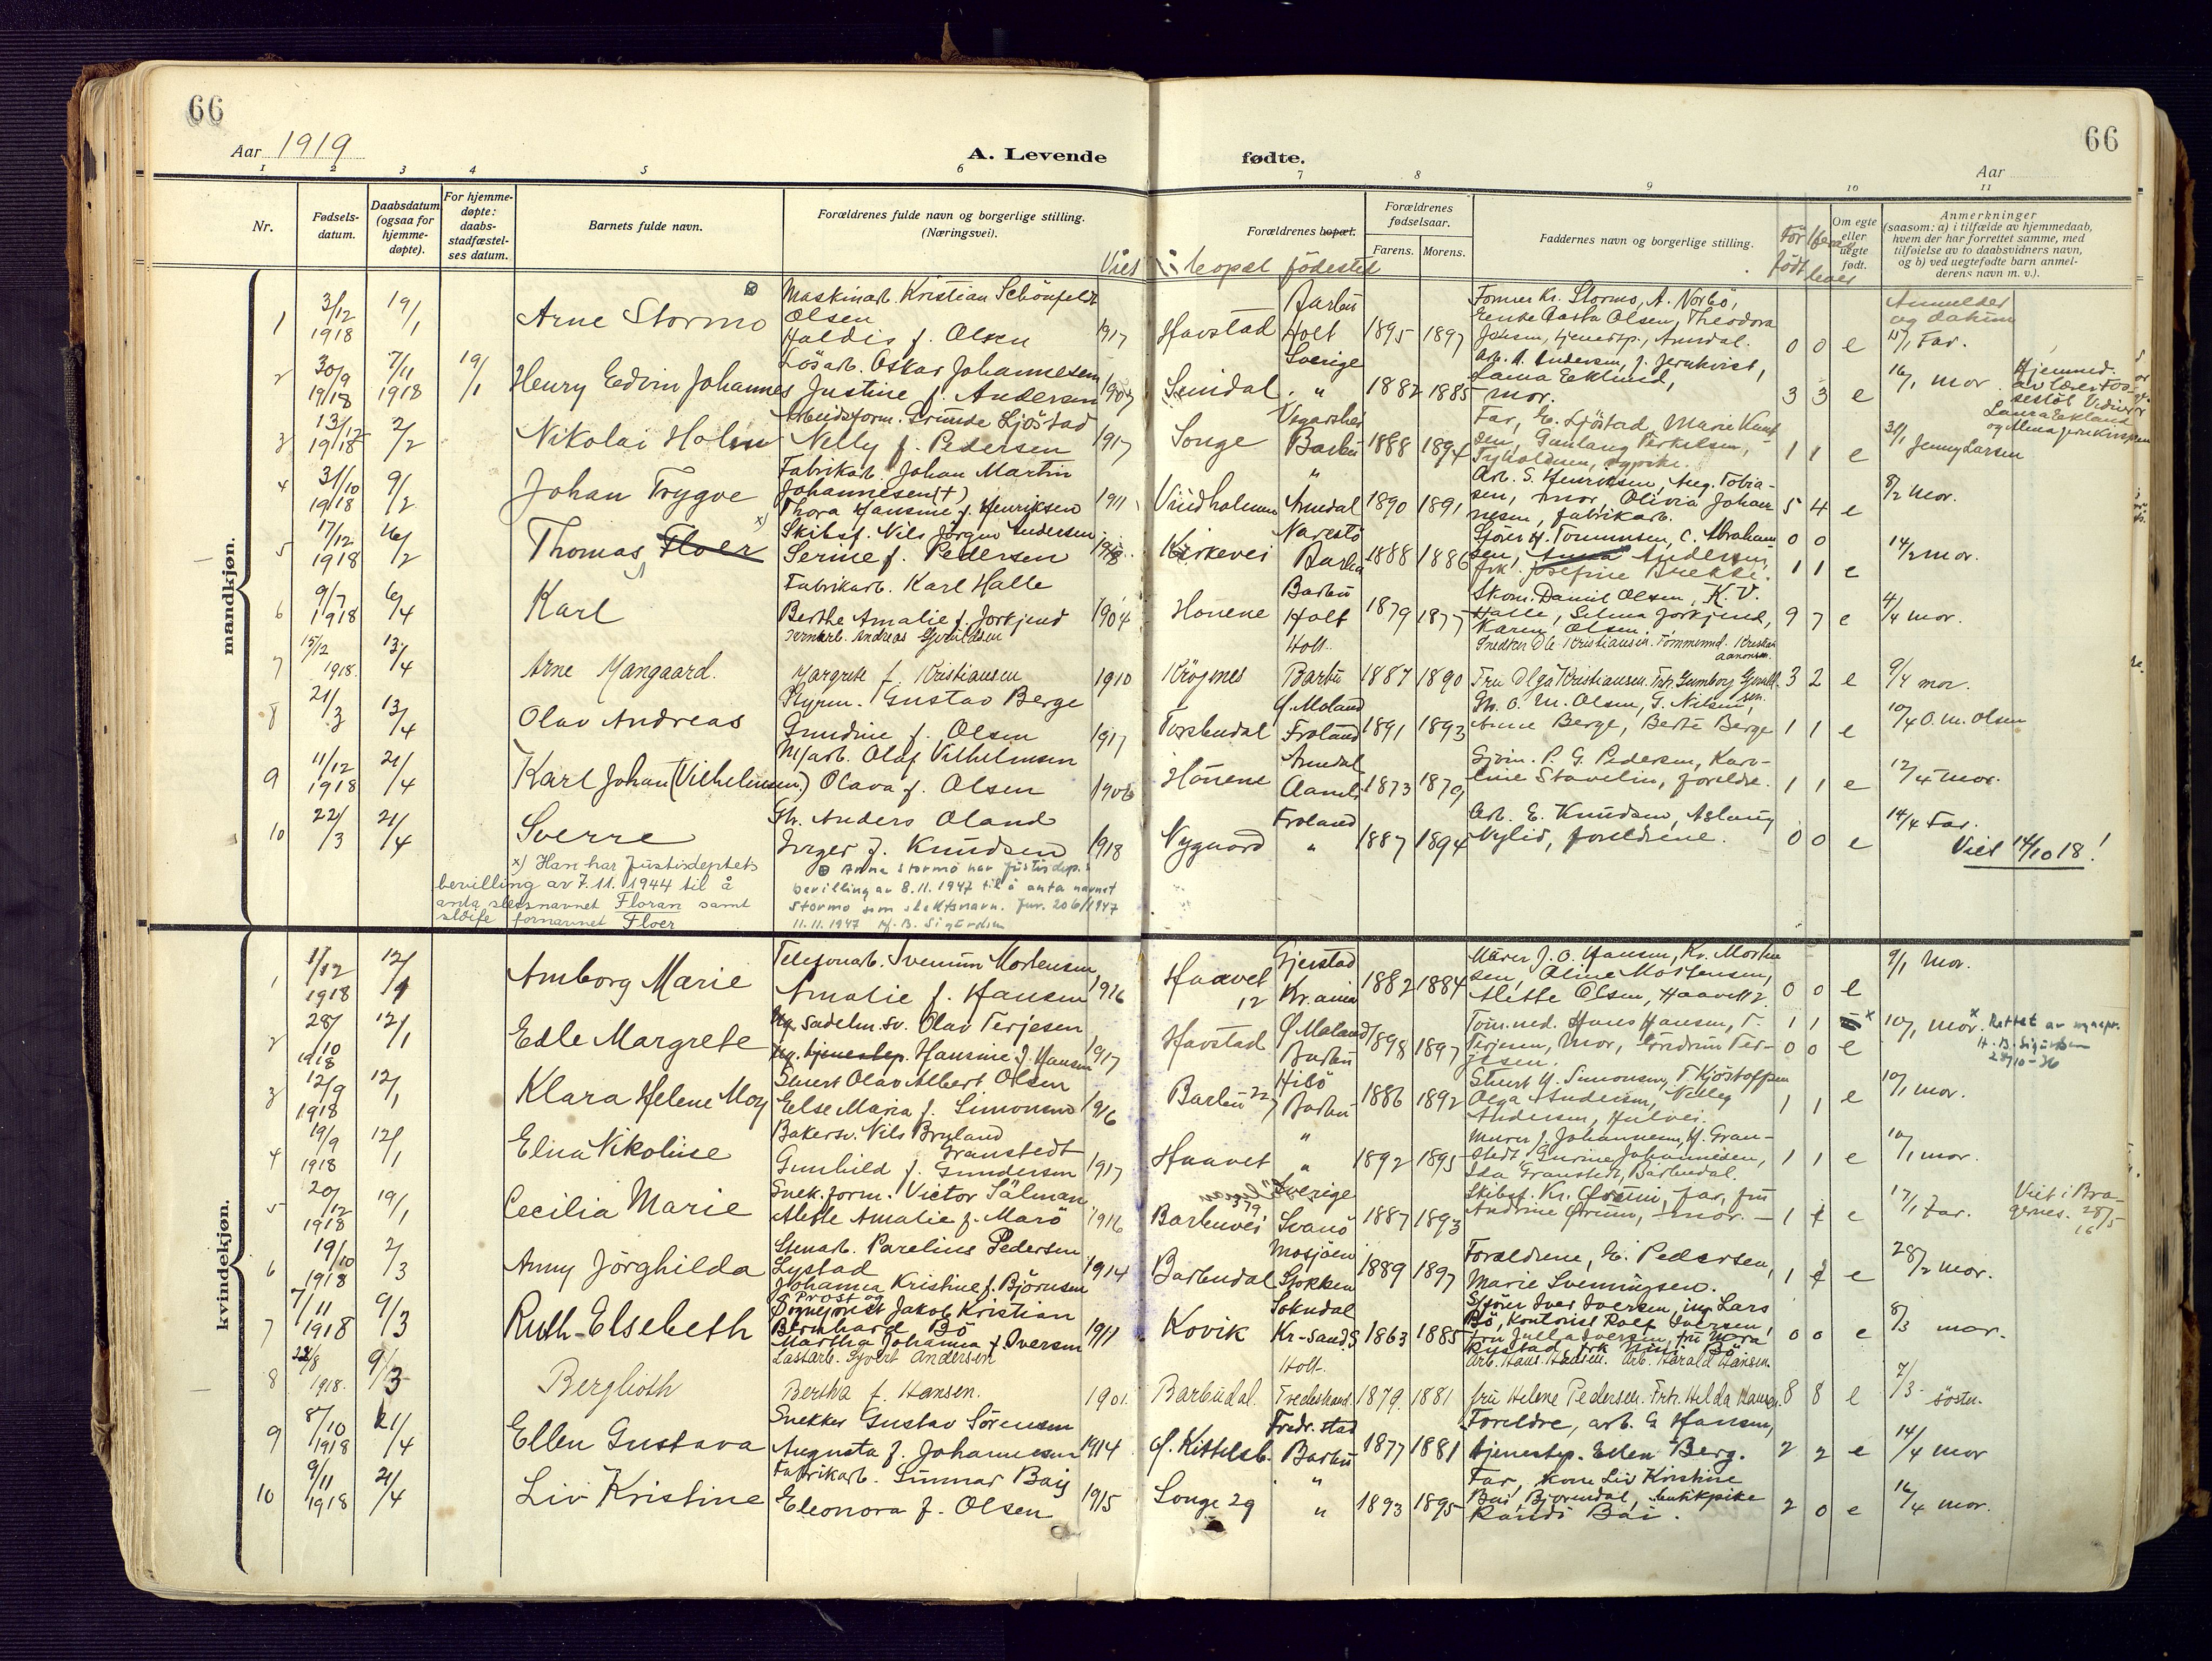 66
66
Aar 1919
A. Levende
fødte.
Aar
1 2 3 4 5 6 7 8 9 10 11
Nr.
Fødsels-
datum.
Daabsdatum
(ogsaa for
hjemme-
døpte).
For hjemme-
døpte:
daabs-
stadfæstel-
ses datum.
Barnets fulde navn.
Forældrenes fulde navn og borgerlige stilling.
(Næringsvei).
Viet
Forældrenes bopæl.
bopæl fødested
Forældrenes
fødselsaar.
Farens. Morens.
Faddernes navn og borgerlige stilling.
Før
født
lever
Om egte
eller
uegte
født.
Anmerkninger
(saasom: a) i tilfælde av hjemmedaab,
hvem der har forrettet samme, med
tilføielse av to daabsvidners navn,
og b) ved uegtefødte barn anmel-
derens navn m. v.).
mandkjøn.
Anmelder
og datum
1 3/12 1918 19/1 Arne Stormo
Maskinarb. Kristian Schönfeldt
Olsen
Haldis f. Olsen 1917
Havstad Barbu Holt 1895 1897
Former Kr. Stormo, A. Norbö,
Aasta Olsen, Theodora
Jensen, tjenestp., Arendal. 0 0 e
15/1 Far.
2 30/9 1918 7/11 1918 19/1 Henry Edvin Johannes
Lösarb. Oskar Johannesen
Justine f. Andersen 1907
Sverige " 1882 1885
Arb. A. Andersen, J. Jernkvist,
Laura Eklund,
mor. 3 3 e
16/1 mor
Hjemmed.
av lærer Fos-
sestöl Vidner
Laura Ekland
3 13/12 1918 2/2 Nikolai Holm
Arbeidsform. Grunde Ljöstad
Nelly f. Pedersen 1917
Songe Vegarshei Barbu 1888 1894
Far, E. Ljöstad, Marie Knut-
sen, Gunlaug Terkelsen,
Tyholmen, sypike. 1 1 e
31/1 Jenny Larsen
4 31/10 1918 9/2 Johan Trygve
Fabrikarb. Johan Martin
Johannesen (+)
Thora Hansine f. Henriksen 1911
Vindholmen " Arendal 1890 1891
Arb. S. Henriksen, Aug. Tobia-
sen, mor, Olivia Johan-
nesen, fabrikarb. 5 4 e
8/2 Mor.
5 17/12 1918 16/2 Thomas Floer x)
Skibsf. Nils Jörgen Andersen
Serine f. Pedersen 1918
Kirkevei Narestö Barbu 1888 1886
Sjörer H. Tommesen, C. Abraham-
sen, Anna Andersen,
frk. Josefine Brekke. 0 0 1 1 e
14/2 mor.
6 9/7 1918 6/4 Karl
Fabrikarb. Karl Halle
Berthe Amalie f. Jorkjend 1904
Hönene Barbu Holt 1879 1877
Skom. Daniel Olsen, K. V.
Halle, Selma Jorkjend,
Karen Olsen. 9 7 e
4/4 mor.
7 15/12 1918. 13/4 Arne Mangaard.
Jernarb. Andreas Gjeruldsen
Margrete f. Kristiansen 1910
Krögenes Holt. Barbu 1887 1890
Snedker Ole Kristiansen. Tömmermd. Kristian
Aanonsen.
Fru Olga Kristiansen. Frk. Gunborg Gjeruld-
sen. 3 2 e
9/4 mor.
8 21/3 13/4 Olav Andreas
Styrm. Gustav Berge
Gundine f. Olsen 1917
Torsbudal Ö. Moland Froland 1891 1893
Gh. O. M. Olsen, G. Nilsen,
Anne Berge, Berte Berge 1 1 e
10/4 O. M. Olsen
9 11/12 1918 21/4 Karl Johan (Vilhelmsen)
M/arb. Olaf Vilhelmsen
Olava f. Olsen 1906
Hönene Arendal Aamli 1873 1879
Gjörm. P. G. Pedersen, Karo-
line Stavelin, foreldre. 1 1 e
12/4 mor.
10 22/3 21/4 Sverre
Gh. Anders Oland
Inger f. Knudsen 1918
Nygaard Froland " 1887 1894
Arb. E. Knudsen, Aslaug
Nylid, foreldrene. 0 0 e
14/4 Far.
Viet 14/10 18!
x) Han har Justisdeptets
bevilling av 7.11.1944 til å
anta slektsnavnet Floran samt
sløife fornavnet Floer
⊗ Arne Stormo har Justisdep.s
bevilling av 8.11.1947 til å anta navnet
Stormo som slektsnavn. Jnr. 206/1947
11.11.1947 H. B. Sigurdsen
kvindekjøn.
1 1/12 1918 12/1 Amborg Marie
Telefonarb. Svenum Mortensen
Amalie f. Hansen 1916
Haavet 12 Gjerstad Kr.ania 1882 1884
Murer J. O. Hansen, Kr. Morten-
sen, Oline Mortensen,
Alette Olsen, Haavet 2. 0 0 e
9/1 Mor.
2 28/10 1918 12/1 Edle Margrete
Sadelm.sv. Olav Terjesen
Ug. tjenestep. Hansine f. Hansen 1917
Havstad Ö Moland Barbu 1898 1897
Töm.md. Hans Hansen, T.
Terjesen, Mor, Gudrun Ter-
jesen. 1 1 0 0 e
10/1 mor. x Rettet av sognepr.
H. B. Sigurdsen
28/10-36
3 12/9 1918 12/1 Klara Helene Moy
Stuert Olav Albert Olsen
Else Maria f. Simonsen 1916
Barbu 22 Hisö Barbu 1886 1892
Stuert H. Simonsen, T. Kjöstolfsen
Olga Andersen, Nelley
Andersen, Hulvei. 1 1 e
10/1 mor.
4 19/9 1918 12/1 Elna Nikoline
Bakersv. Nils Bryland
Granstedt
Gunhild f. Gundersen 1917
Haavet " " 1892 1895
Murer J. Johannesen, H. Gran-
stedt, Gurine Johannesen,
Ida Granstedt, Barbudal. 1 1 e
10/1 mor.
5 20/12 1918 19/1 Cecilia Marie
Snek.form. Victor Sälman
Alette Amalie f. Marö 1916
Barbuvei 379 Sverige Svanö 1887 1893
Skibsf. Kr. Ösrum, far, fru
Andrine Ösrum, mor. 1 1 e
17/1 Far.
Viet i Bra-
gernes. 28/5
16
6 19/10 1918 2/3 Anny Jörghilda
Stenarb. Parelius Pedersen
Lystad
Johanna Kristine f. Björnsen 1914
Barbudal Mosjöen Stokken 1889 1897
Forældrene, E. Pedersen,
Marie Svenningsen. 1 1 e
28/2 mor.
7 7/11 1918 9/3 Ruth Elsebeth
Prost og
Sogneprest Jakob Kristian
Bernhard Bö
Martha Johanna f. Iversen 1911
Kovik Sokndal Kr-sand S 1863 1885
Skförer Iver Iversen, ing. Lars
Bö, kontorist Rolf Iversen,
fru Julla Iversen, fru Mara
Rustad, frk Nini Bö 0 0 e
8/3 mor.
8 22/8 1918. 9/3 Berglioth
Lastarb. Syvert Andersen
Bertha f. Hansen. 1901.
Barbudal. Holt. Tvedestrand. 1879. 1881
Arb. Hans Hansen. Arb. Harald Hansen.
fru Helene Pedersen. Frk. Hilda Hansen. 8 8 e
7/3 söster.
9 8/10 1918 21/4 Ellen Gustava
Snekker Gustav Sörensen
Augusta f. Johannesen 1914
Ö. Kittelsb. Fredr.stad Barbu 1877 1881
Foreldre, arb. G Hansen,
tjenestep. Ellen Berg. 2 2 e
14/4 mor
10 9/11 1918 21/4 Liv Kristine
Fabrikarb. Gunnar Baij
Eleonora f. Olsen 1915
Songe 29 " " 1893 1895
Far, kone Liv Kristine
Bai, Bjorendal, butikpike
Randi Bai. 2 0 e
16/4 mor.